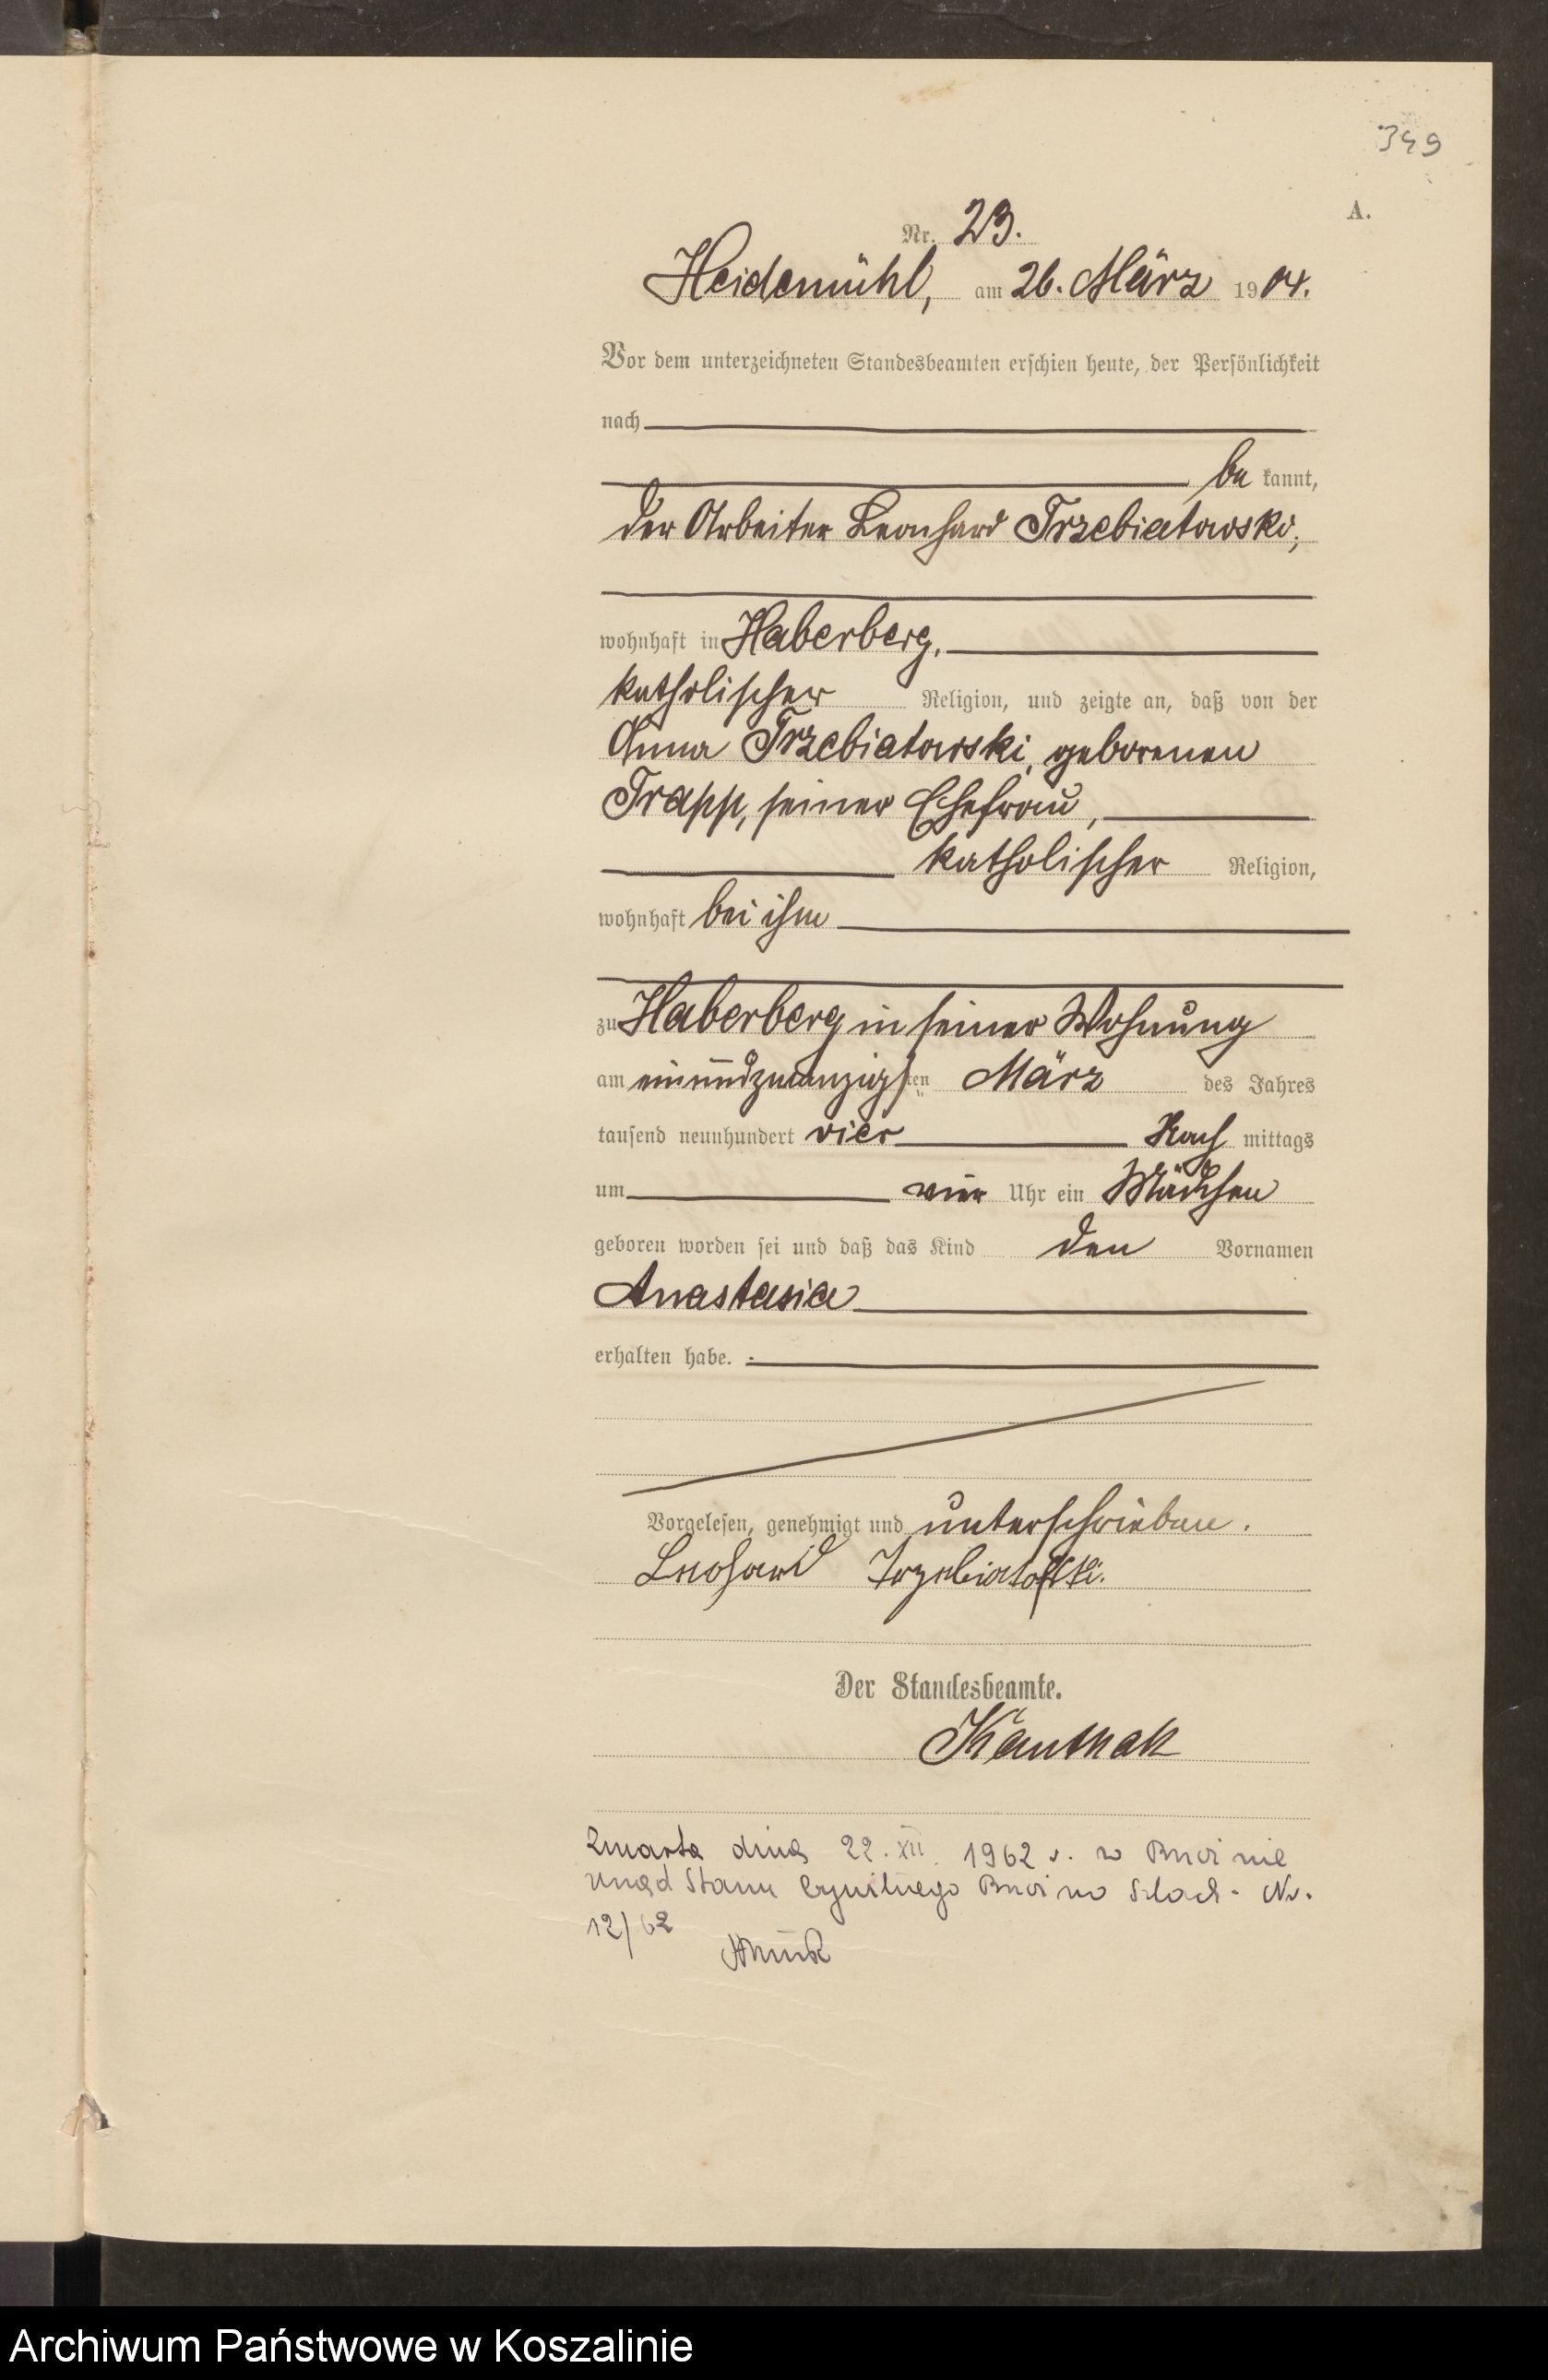 349
A.
Nr. 23.
Heidemühl, am 26. März 1904.
Vor dem unterzeichneten Standesbeamten erschien heute, der Persönlichkeit
nach
be kannt,
der Arbeiter Leonhard Trzebiatowski,
wohnhaft in Haberberg,
katholischer Religion, und zeigte an, daß von der
Anna Trzebiatowski, geborenen
Trapp, seiner Ehefrau,
katholischer Religion,
wohnhaft bei ihm
zu Haberberg in seiner Wohnung
am einundzwanzigsten März des Jahres
tausend neunhundert vier Nach mittags
um vier Uhr ein Mädchen
geboren worden sei und daß das Kind den Vornamen
Anastasia
erhalten habe.
Vorgelesen, genehmigt und unterschrieben.
Trzebiatofski.
Der Standesbeamte.
Zmarła dnia 22. XII. 1962 r. w
Urząd Stanu Cywilnego No.
12/62
Archiwum Państwowe w Koszalinie